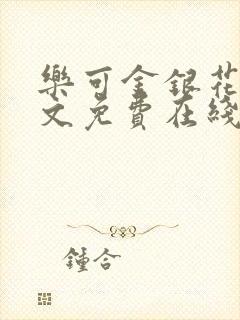 樂可金銀花
文免費在綫
鍾合